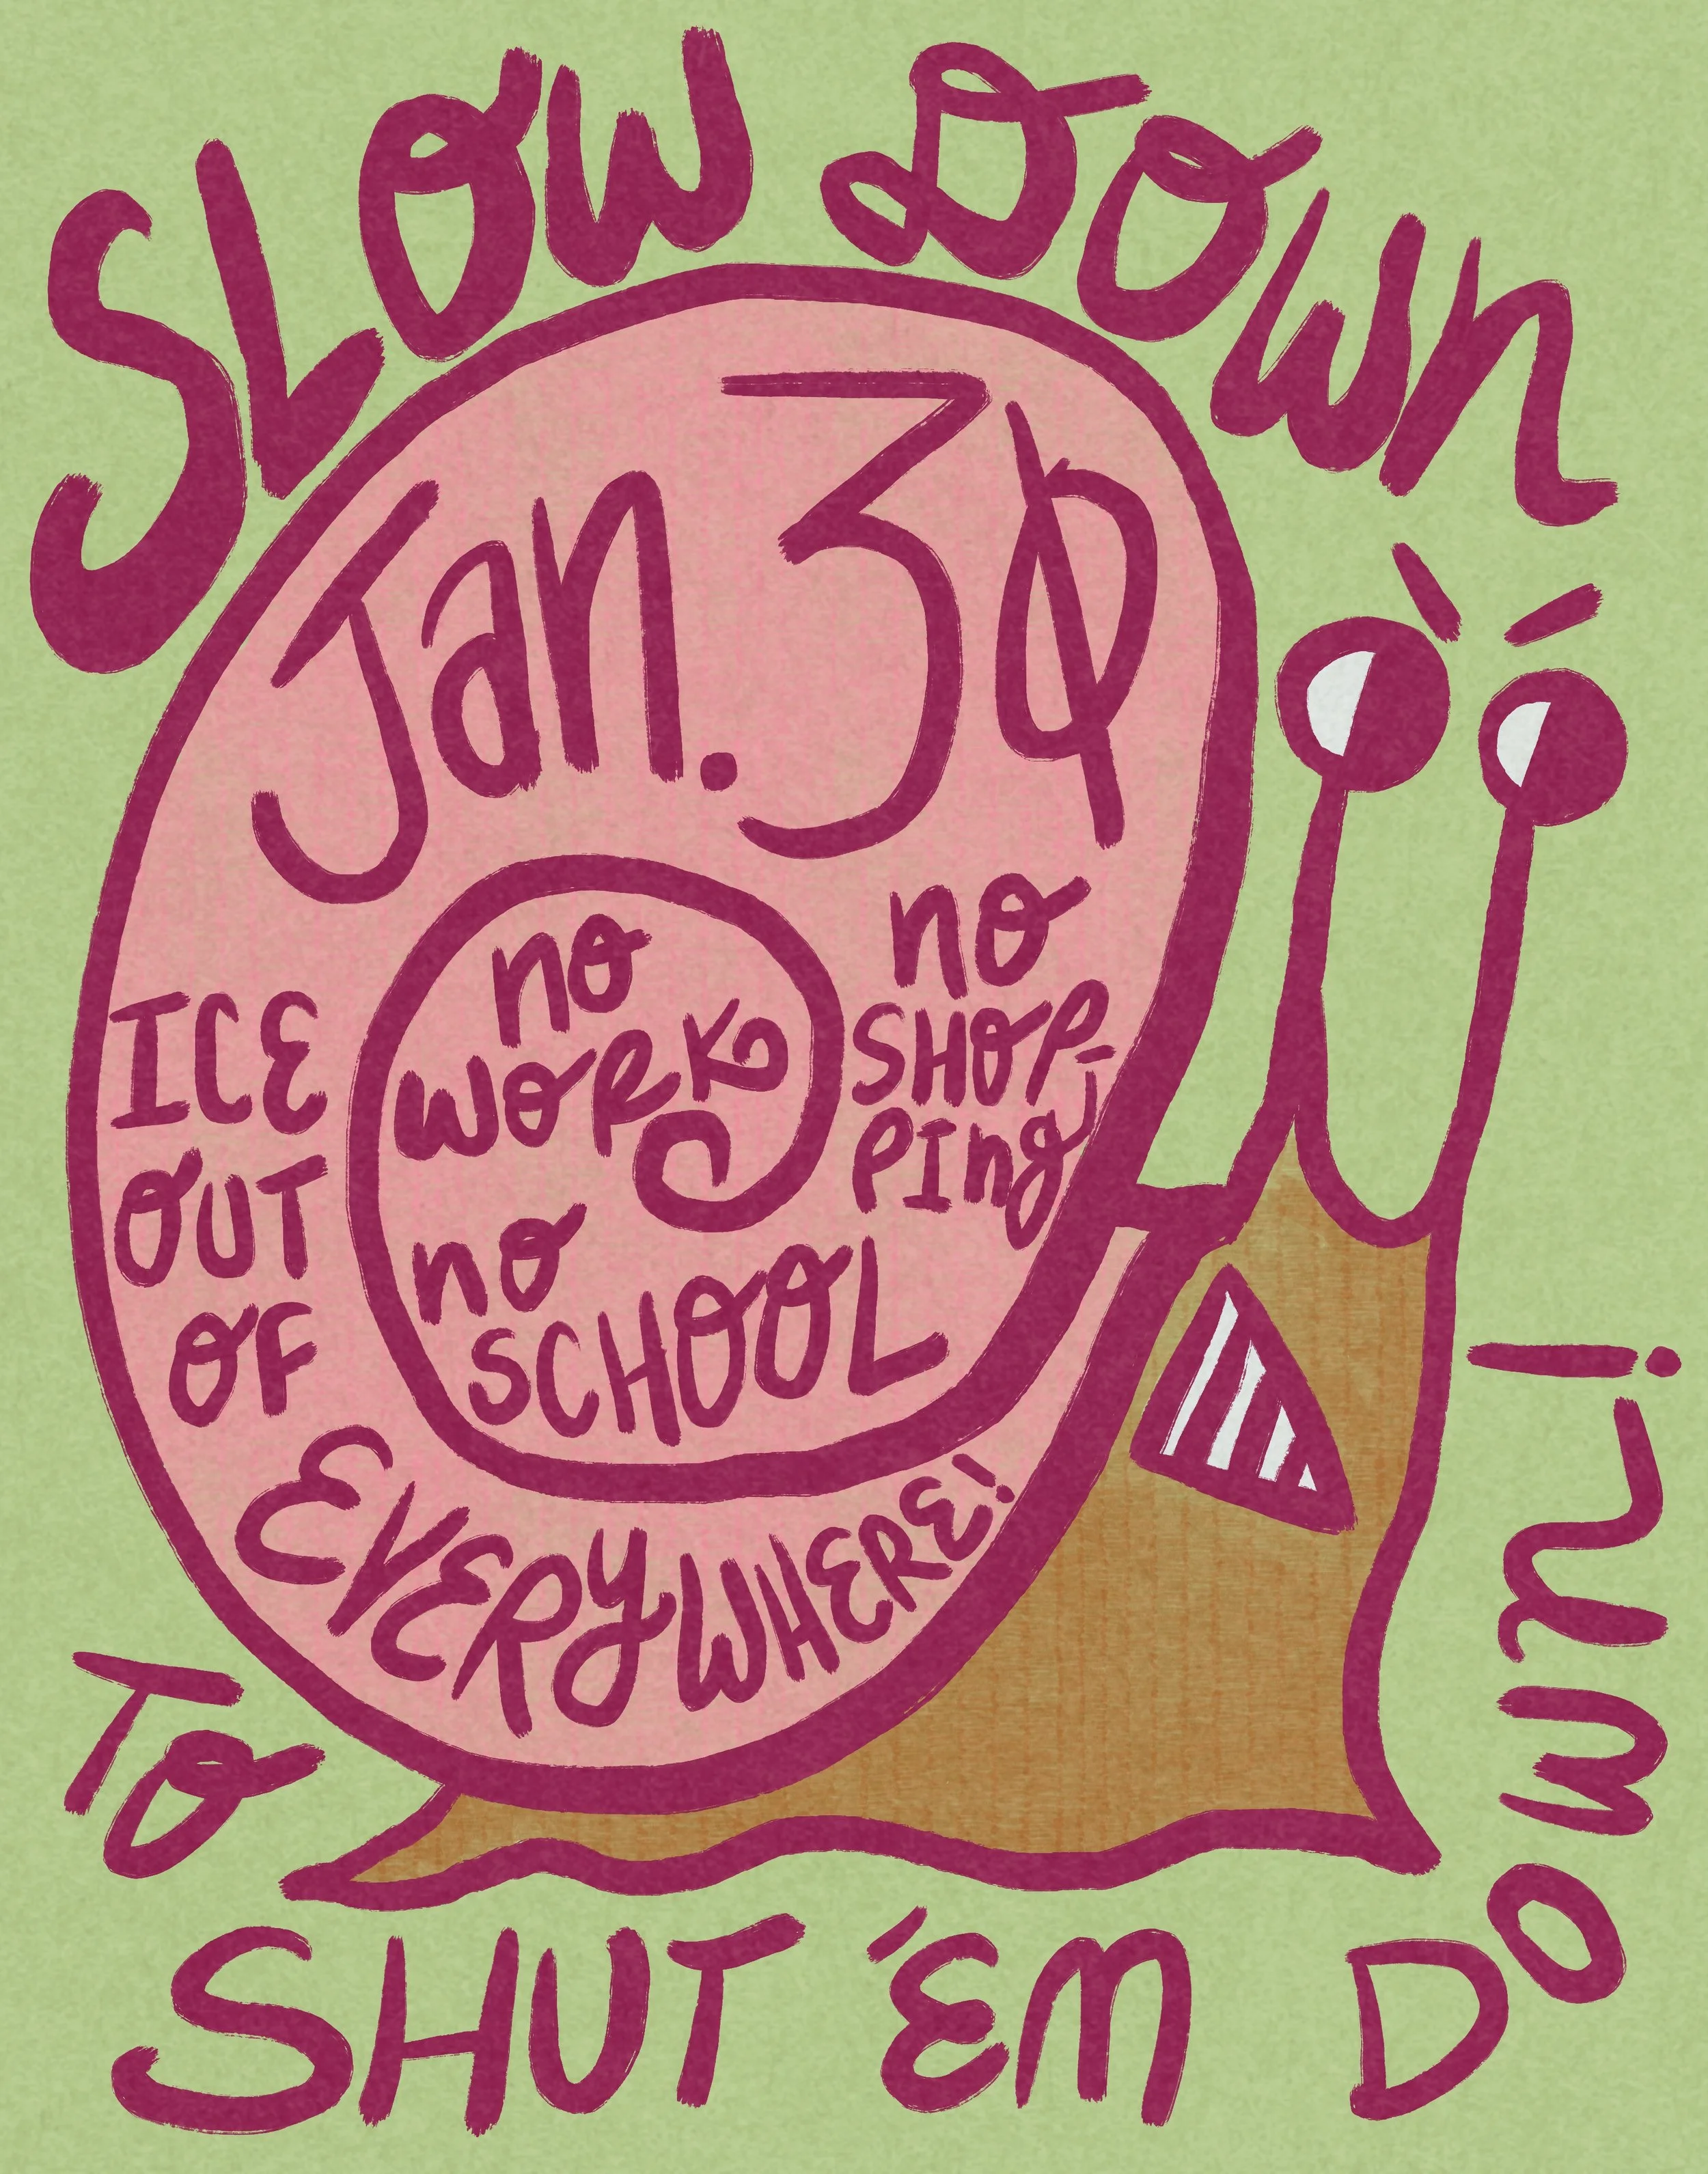 SLOW DOWN
Jan. 30
no
WORK
no
SCHOOL
no
SHOP-
PIng
ICE
OUT
OF
EVERYWHERE!
To
SHUT 'EM DOWn!